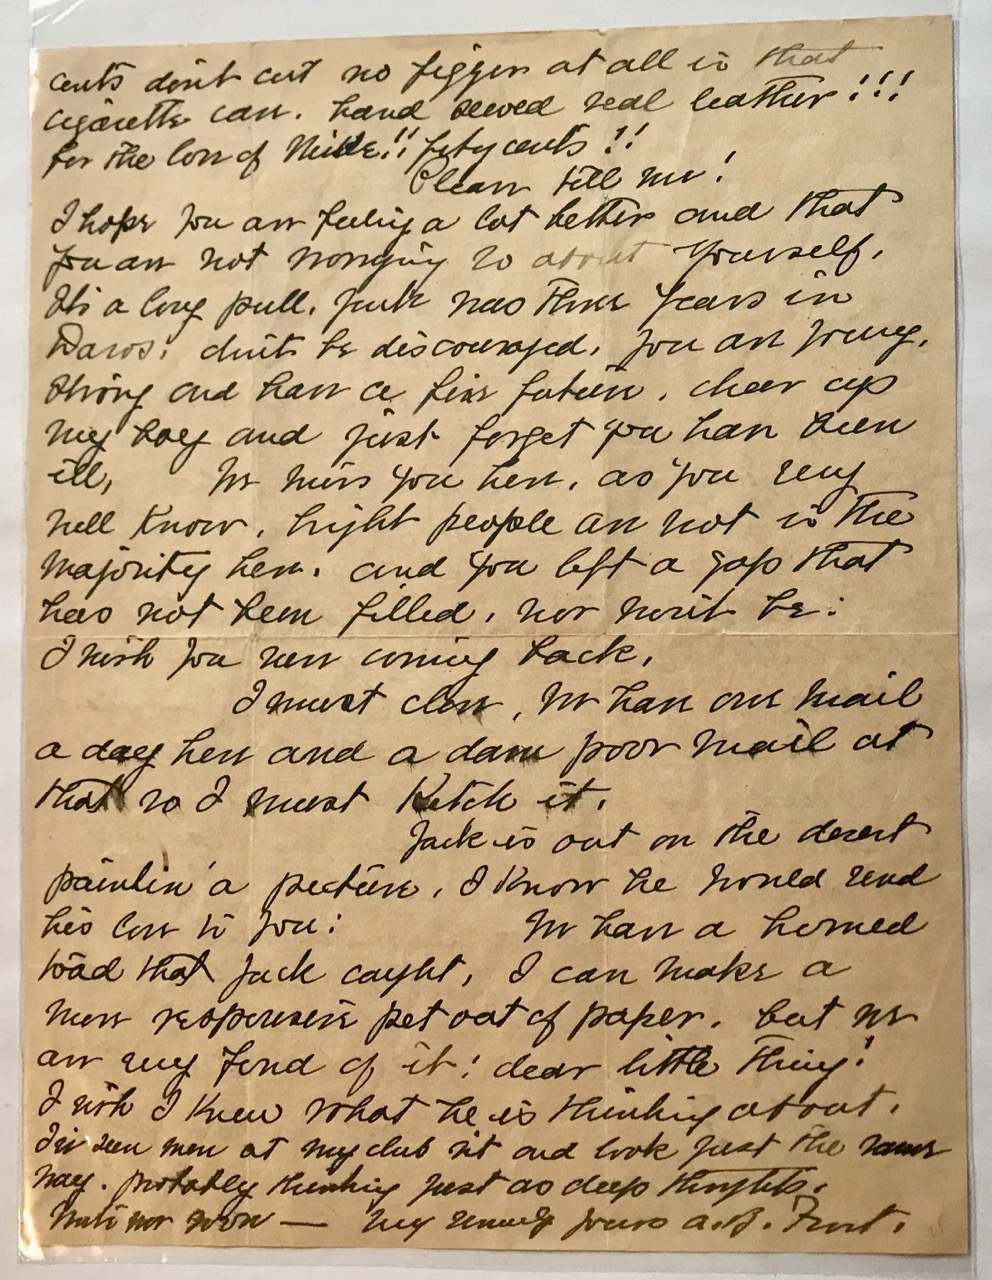 cents don't cut no figger at all is that
cigarette case. hand sewed real leather!!!
for the love of Mike!! fifty cents!!
Please tell me!
I hope you are feeling a lot better and that
you are not worrying so about yourself.
It's a long pull. Jack was three years in
Davos: don't be discouraged. you are young,
strong and have a fine future. cheer up
my boy and just forget you have been
ill, We miss you here, as you very
well know. bright people are not in the
majority here. and you left a gap that
has not been filled, nor won't be:
I wish you were coming back.
I must close, We have one mail
a day here and a dam poor mail at
that so I must Ketch it.
Jack is out on the desert
paintin' a picture. I know he would send
his love to you: We have a horned
toad that Jack caught, I can make a
more responsive pet out of paper. but we
are very fond of it: dear little thing!
I wish I knew what he is thinking about.
I've seen men at my club sit and look just the same
way. probably thinking just as deep thoughts.
Write me soon — Very sincerely yours A.B. Frost.